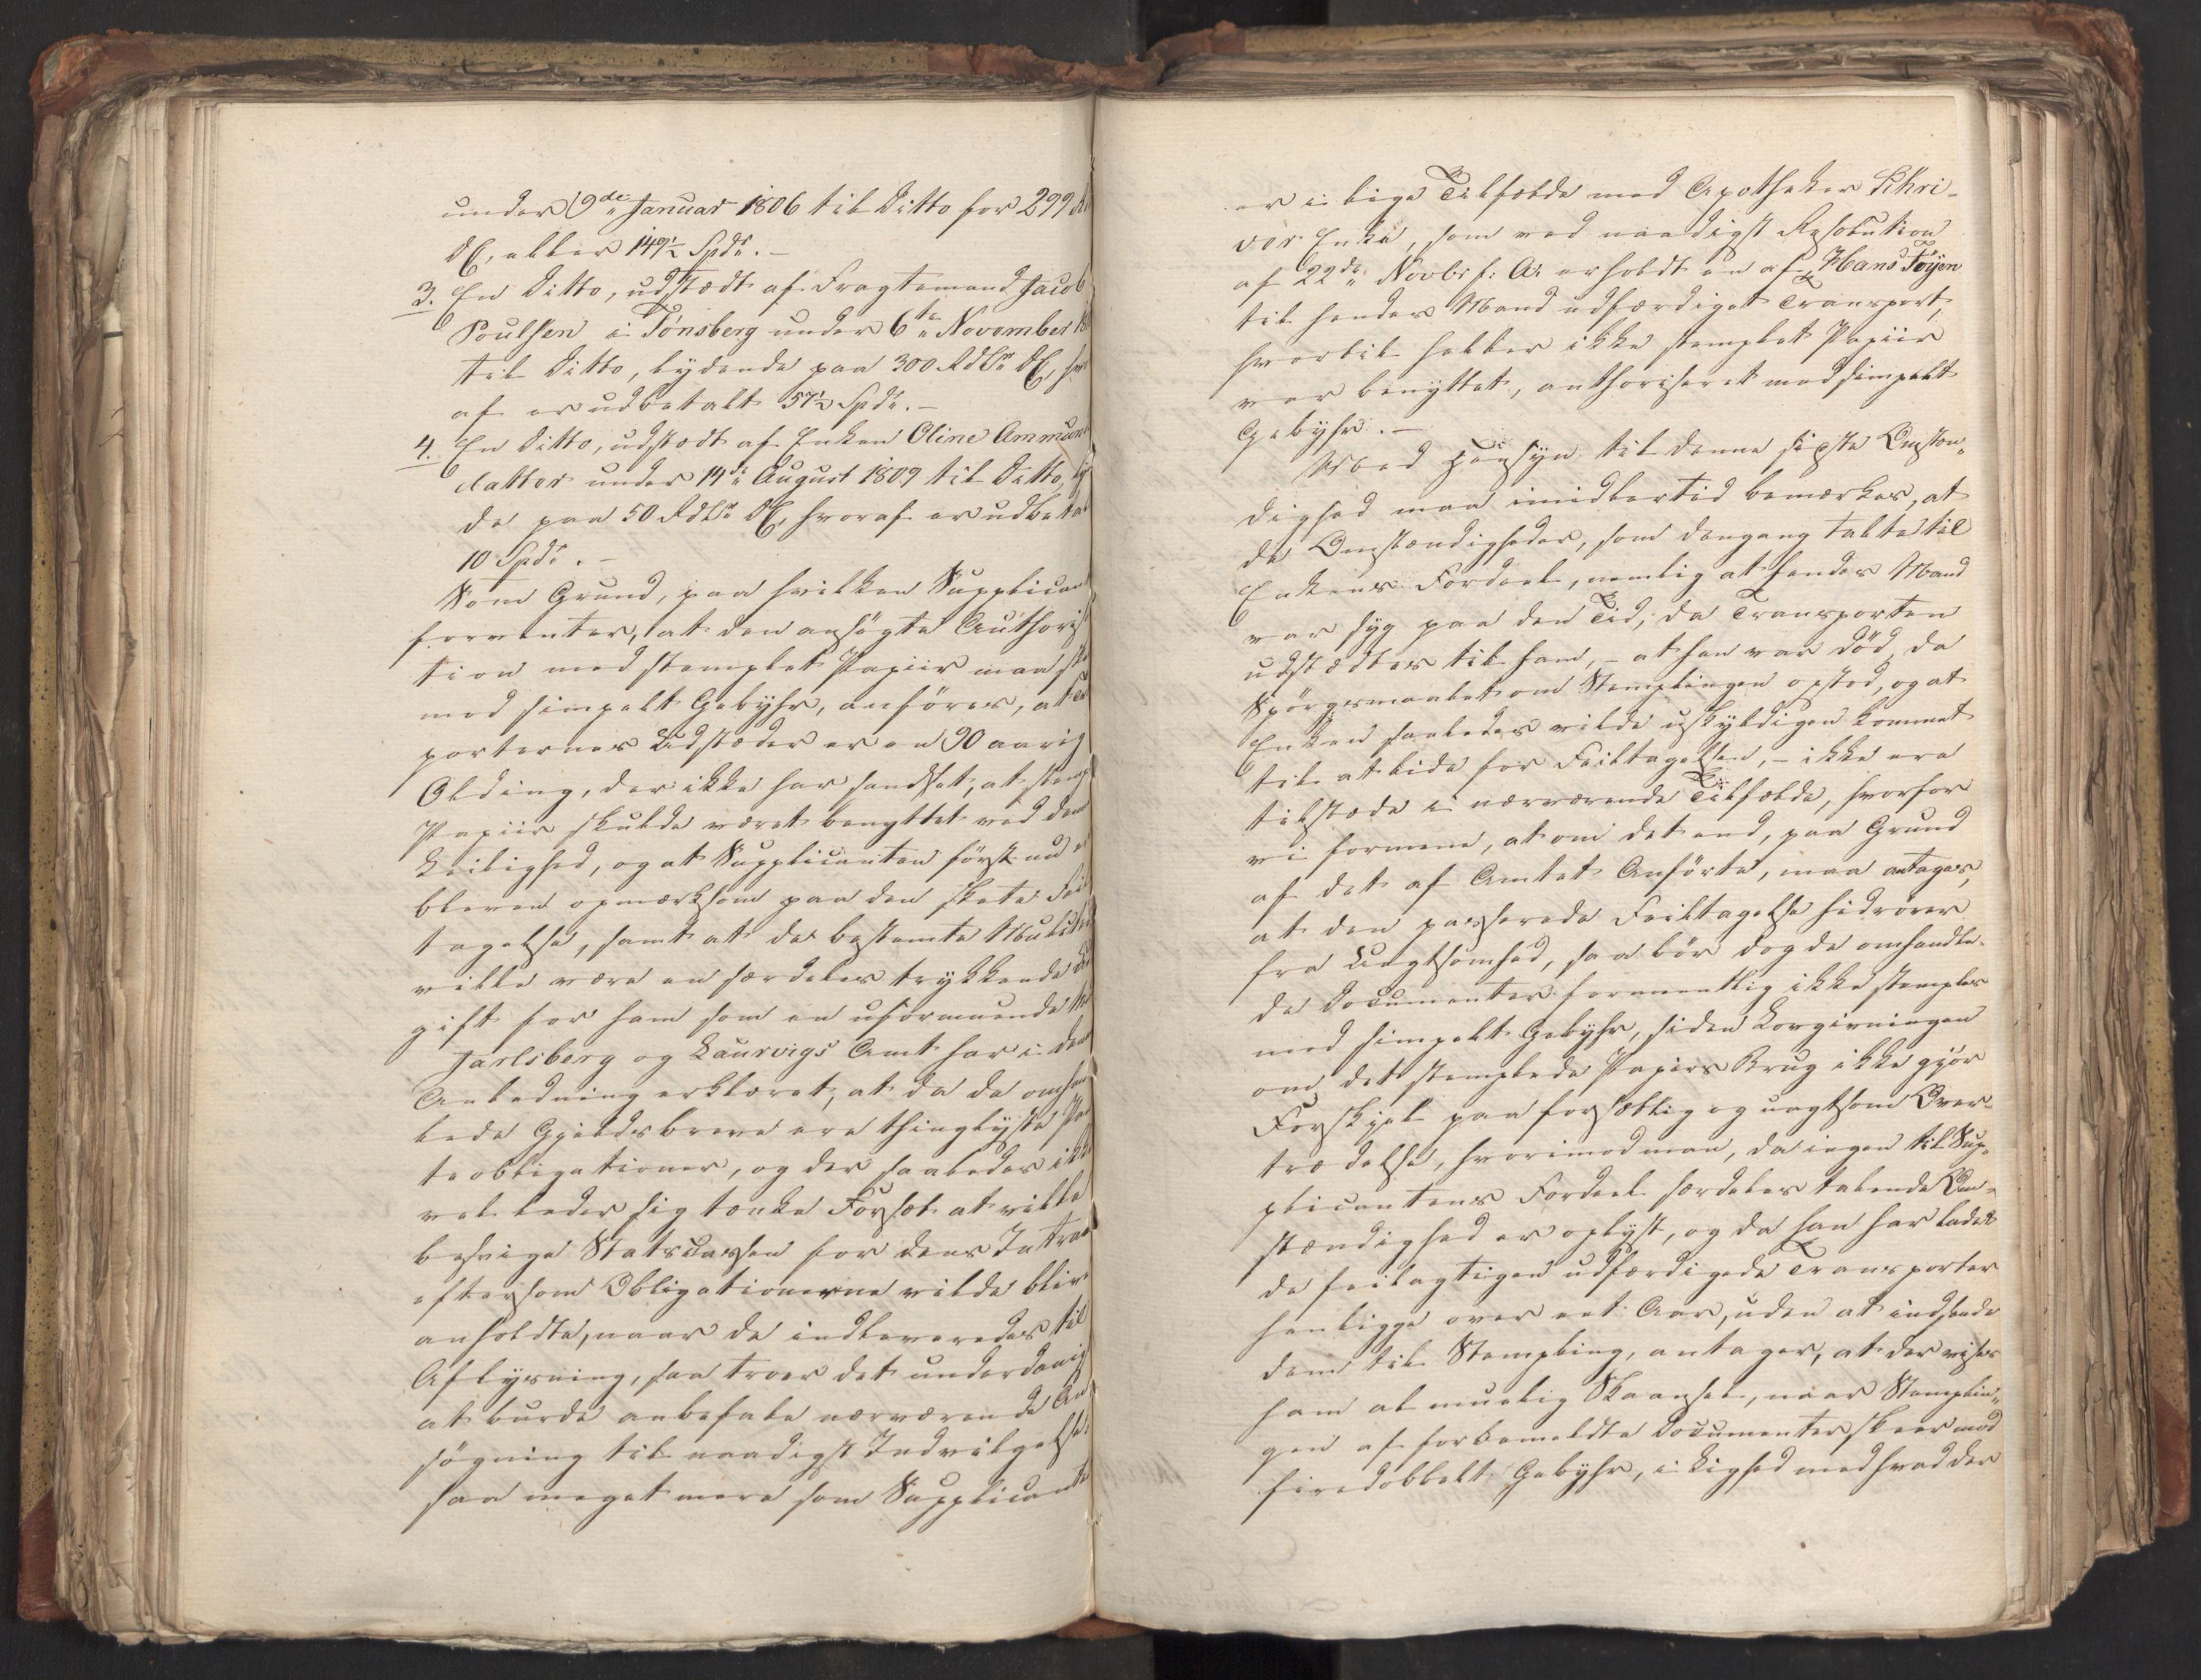 under 9de Januar 1806 til Ditto for 299 Rd
DC, eller 149½ Spdr. –
3. En Ditto, udstædt af Fragtemand Jacob
Poulsen i Tönsberg under 6te November 18
til Ditto, lydende paa 300 Rdlr DC, hvor
af er udbetalt 57½ Spdr. –
4. En Ditto, udstædt af Enken Oline Ammund
datter under 14de August 1809 til Ditto, ly
de paa 50 Rdlr DC, hvoraf er udbetal
10 Spdr. –
Som Grund, paa hvilken Supplican
forventer, at den ansögte Authoris
tion med stemplet Papiir maa ske
mod simpelt Gebyhr, anföres, at Tr
porternes Udstæder er en 90 aarig
Olding, der ikke har sandset, at stemp
Papiir skulde været benyttet ved den
Leilighed, og at Supplicanten först nu er
bleven opmærksom paa den skete Feil
tagelse, samt at de bestemte Mulkter
ville være en særdeles trykkende Ud
gift for ham som en uformuende M
Jarlsberg og Laurvigs Amt har i den
Anledning erklæret, at da de omhan
lede Gjeldsbreve ere thinglyste Pan
teobligationer, og der saaledes ikke
vel lader sig tænke Forsæt at ville
besvige Statscassen for dens Intrad
eftersom Obligationerne vilde blive
anholdte, naar de indleveredes til
Aflysning, saa troer det underdanig
at burde anbefale nærværende An
søgning til naadigst Indvilgelse
saa meget mere som Supplicante
er i lige Tilfælde med Apotheker Schri-
vers Enke, som ved naadigst Resolution
af 22de Novbr f: A: erholdt en af Hans Töyen
til hendes Mand udfærdiget Transport,
hvortil heller ikke stemplet Papiir
var benyttet, authoriseret mod simpelt
Gebyhr. –
Med Hensyn til denne sidste Omstæn-
dighed maa imidlertid bemærkes, at
de Omstændigheder, som dengang talte til
Enkens Fordeel, nemlig at hendes Mand
var syg paa den Tid, da Transporten
udstædtes til ham, – at han var död, da
Spörgsmaalet om Stemplingen opstod, og at
Enken saaledes vilde uskyldigen kommet
til at lide for Feiltagelsen, – ikke ere
tilstæde i nærværende Tilfælde, hvorfor
vi formene, at om det end, paa Grund
af det af Amtet Anförte, maa antages,
at den passerede Feiltagelse hidrörer
fra Uagtsomhed, saa bör dog de omhandle-
de Documenter formentlig ikke stemples
mod simpelt Gebyhr, siden Lovgivningen
om det stemplede Papirs Brug ikke gjör
Forskjel paa forsætlig og uagtsom Over-
trædelse, hvorimod man, da ingen til Sup-
plicantens Fordeel særdeles talende Om-
stændighed er oplyst, og da han har ladet
de feilagtigen udfærdigede Transporter
henligge over eet Aar, uden at indsende
dem til Stempling, antager, at der vises
ham al muelig Skaansel, naar Stemplin-
gen af forbemeldte Documenter skeer mod
firedobbelt Gebyhr, i Lighed med hvad der